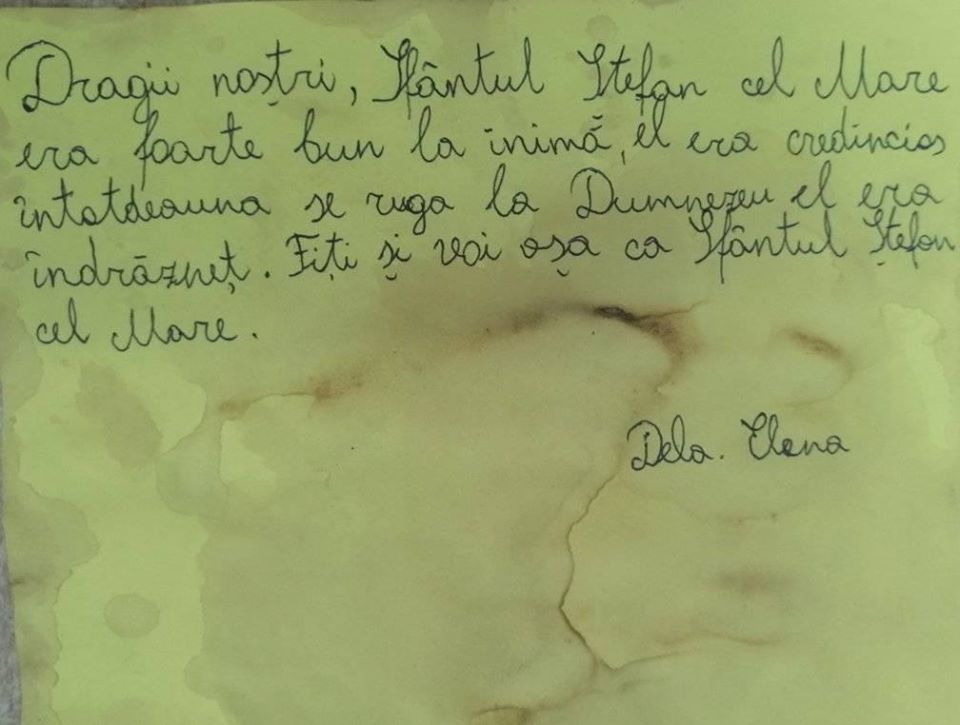 Dragii noștri, Sfântul Ștefan cel Mare
era foarte bun la inimă, el era credincios
întotdeauna se ruga la Dumnezeu el era
îndrăzneț. Fiți și voi așa ca Sfântul Ștefan
cel Mare.
Dela. Elena